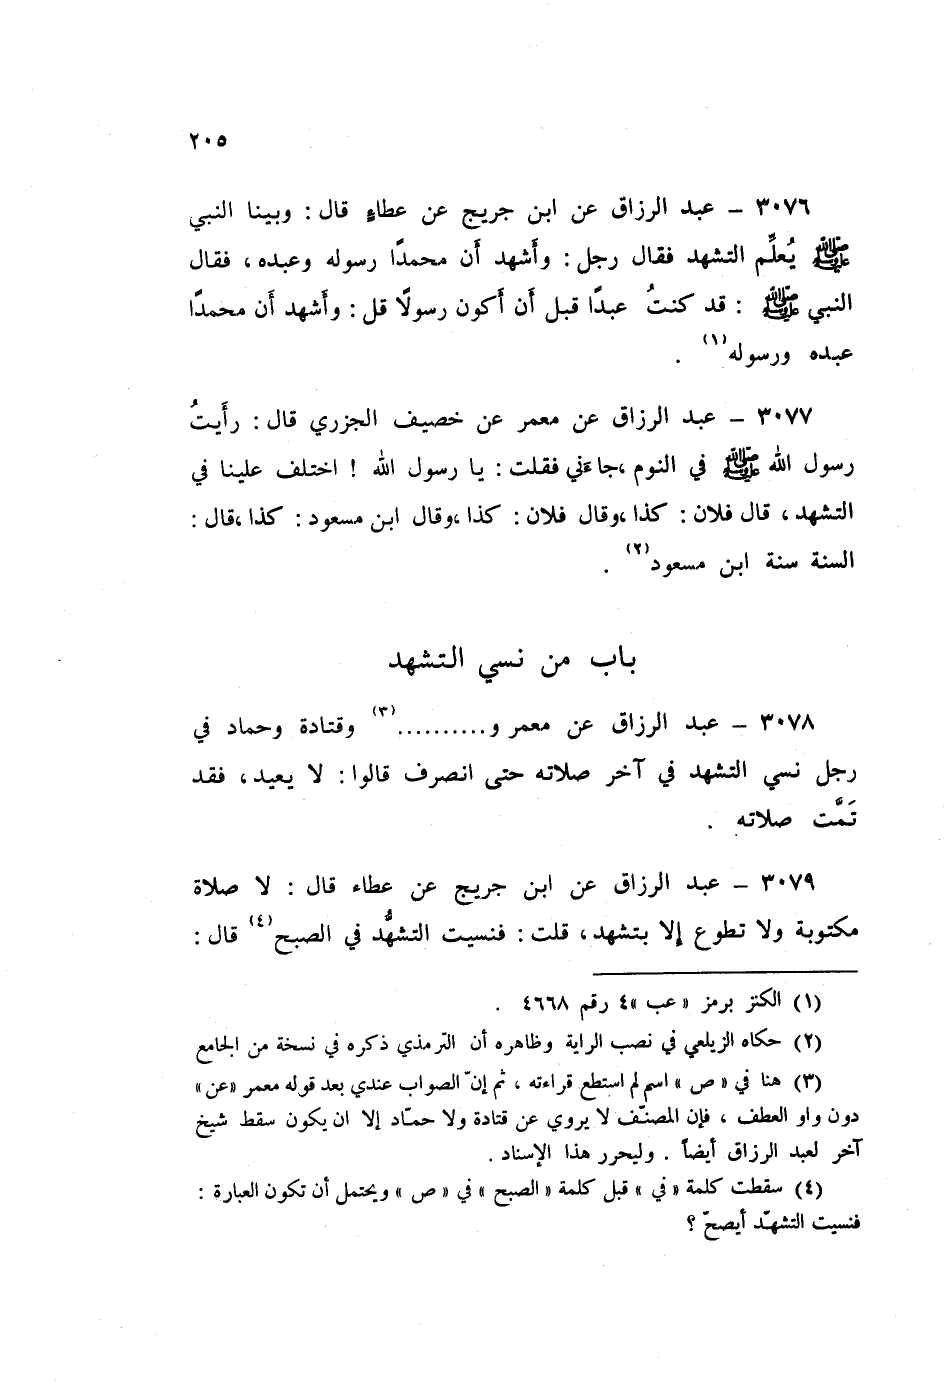 ٢٠٥
٣٠٧٦ – عبد الرزاق عن ابن جريج عن عطاءٍ قال : وبينا النبي
ﷺ يُعلِّم التشهد فقال رجل : وأَشهد أَن محمدًا رسوله وعبده ، فقال
النبي ﷺ : قد كنتُ عبدًا قبل أَن أَكون رسولًا قل : وأَشهد أَن محمدًا
عبده ورسوله(١) .
٣٠٧٧ – عبد الرزاق عن معمر عن خصيف الجزري قال : رأَيتُ
رسول الله ﷺ في النوم ،جاءَني فقلت : يا رسول الله ! اختلف علينا في
التشهد ، قال فلان : كذا ،وقال فلان : كذا ،وقال ابن مسعود : كذا ،قال :
السنة سنة ابن مسعود(٢) .
باب من نسي التشهد
٣٠٧٨ – عبد الرزاق عن معمر و..........(٣) وقتادة وحماد في
رجل نسي التشهد في آخر صلاته حتى انصرف قالوا : لا يعيد ، فقد
تَمَّت صلاته .
٣٠٧٩ – عبد الرزاق عن ابن جريج عن عطاء قال : لا صلاة
مكتوبة ولا تطوع إلا بتشهد ، قلت : فنسيت التشهُّد في الصبح(٤) قال :
(١) الكنز برمز « عب »٤ رقم ٤٦٦٨ .
(٢) حكاه الزيلعي في نصب الراية وظاهره أن الترمذي ذكره في نسخة من الجامع
(٣) هنا في « ص » اسم لم استطع قراءته ، ثم إنّ الصواب عندي بعد قوله معمر «عن»
دون واو العطف ، فإن المصنّف لا يروي عن قتادة ولا حمّاد إلا ان يكون سقط شيخ
آخر لعبد الرزاق أيضاً . وليحرر هذا الإسناد .
(٤) سقطت كلمة « في » قبل كلمة « الصبح » في « ص » ويحتمل أن تكون العبارة :
فنسيت التشهّد أيصحّ ؟